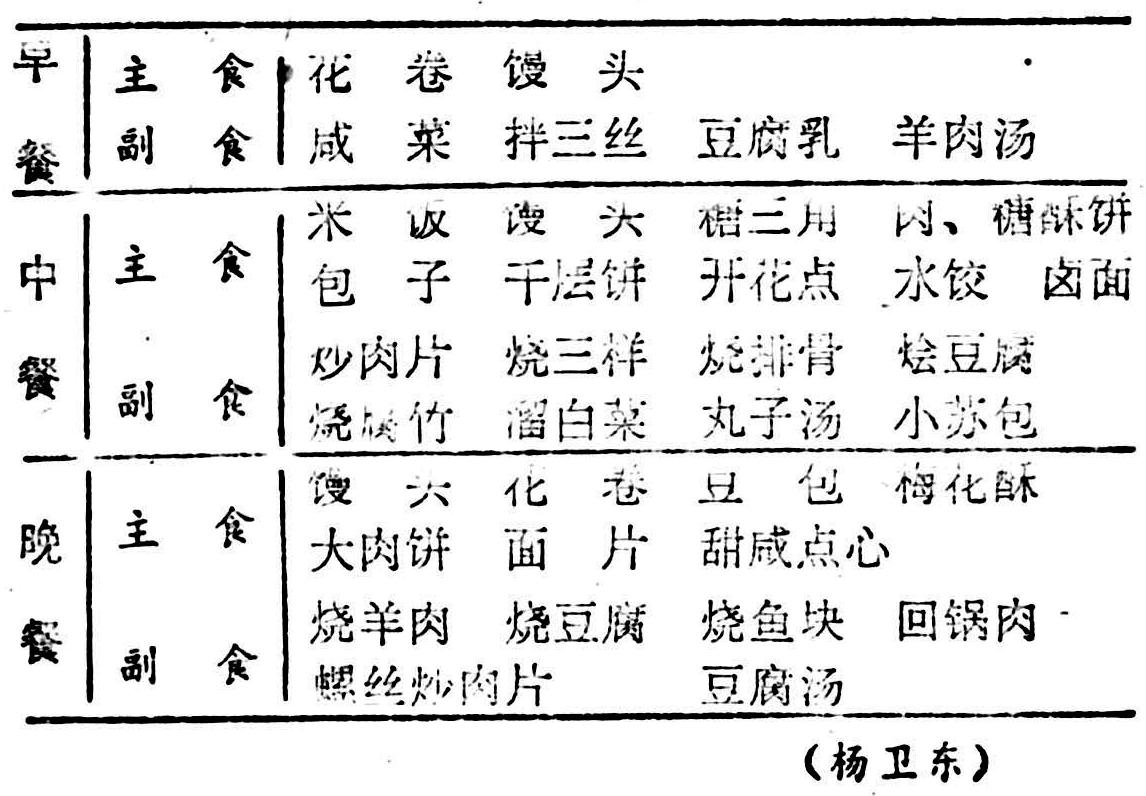 早餐 主食 花卷 馒头
副食 咸菜 拌三丝 豆腐乳 羊肉汤
中餐 主食 米饭 馒头 糖三角 肉、糖酥饼
包子 千层饼 开花点 水饺 卤面
副食 炒肉片 烧三样 烧排骨 烩豆腐
烧腐竹 溜白菜 丸子汤 小苏包
晚餐 主食 馒头 花卷 豆包 梅花酥
大肉饼 面片 甜咸点心
副食 烧羊肉 烧豆腐 烧鱼块 回锅肉
螺丝炒肉片 豆腐汤
(杨卫东)